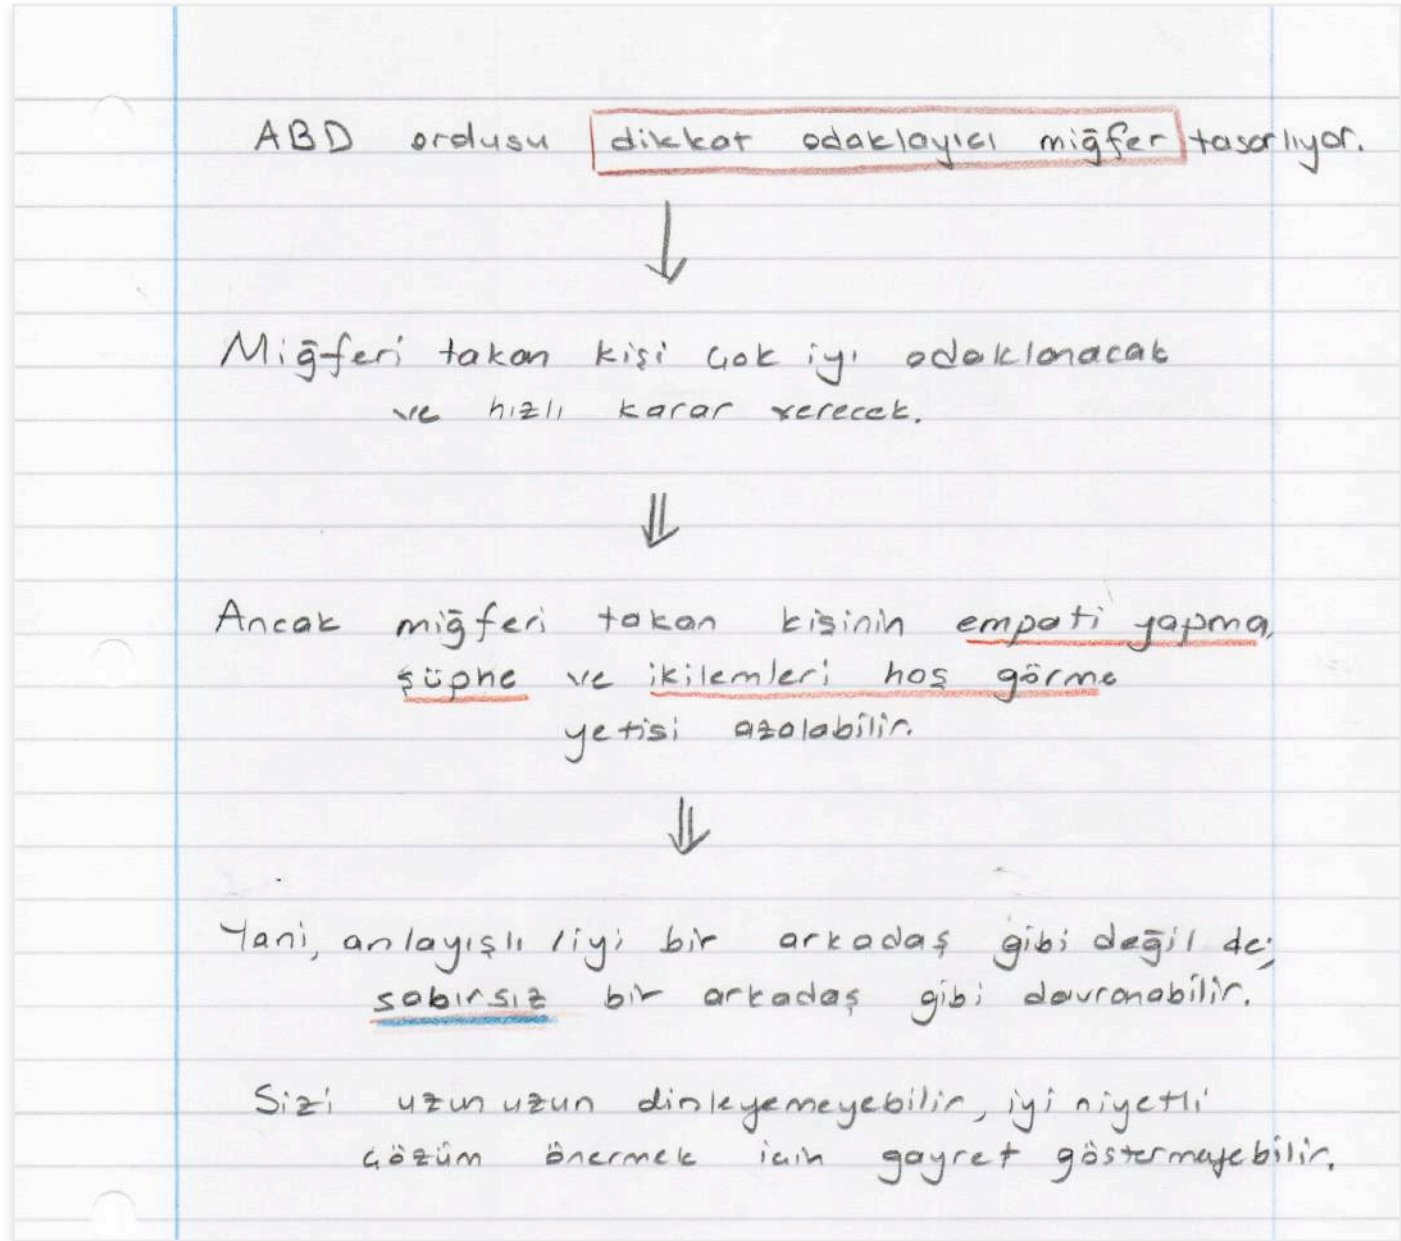 ABD ordusu dikkat odaklayıcı miğfer tasarlıyor.
Miğferi takan kişi çok iyi odaklanacak
ve hızlı karar verecek.
Ancak miğferi takan kişinin empati yapma,
şüphe ve ikilemleri hoş görme
yetisi azalabilir.
Yani, anlayışlı iyi bir arkadaş gibi değil de;
sabırsız bir arkadaş gibi davranabilir.
Sizi uzun uzun dinleyemeyebilir, iyi niyetli
çözüm önermek için gayret göstermeyebilir.